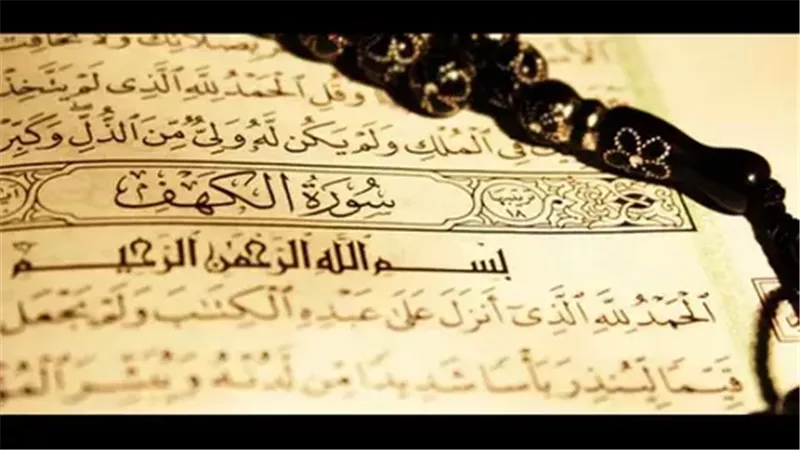 بصلاتك ولا تخافت
وَقُلِ ٱلْحَمْدُ لِلَّهِ ٱلَّذِى لَمْ يَتَّخِذْ
فِى ٱلْمُلْكِ وَلَمْ يَكُن لَّهُۥ وَلِىٌّ مِّنَ ٱلذُّلِّ وَكَبِّرْ
سُورَةُ الكَهْفِ
ترتيبها
١٨
بِسْمِ ٱللَّهِ ٱلرَّحْمَٰنِ ٱلرَّحِيمِ
ٱلْحَمْدُ لِلَّهِ ٱلَّذِىٓ أَنزَلَ عَلَىٰ عَبْدِهِ ٱلْكِتَٰبَ وَلَمْ يَجْعَل
قَيِّمًا لِّيُنذِرَ بَأْسًا شَدِيدًا مِّن لَّدُنْهُ وَيُبَشِّرَ